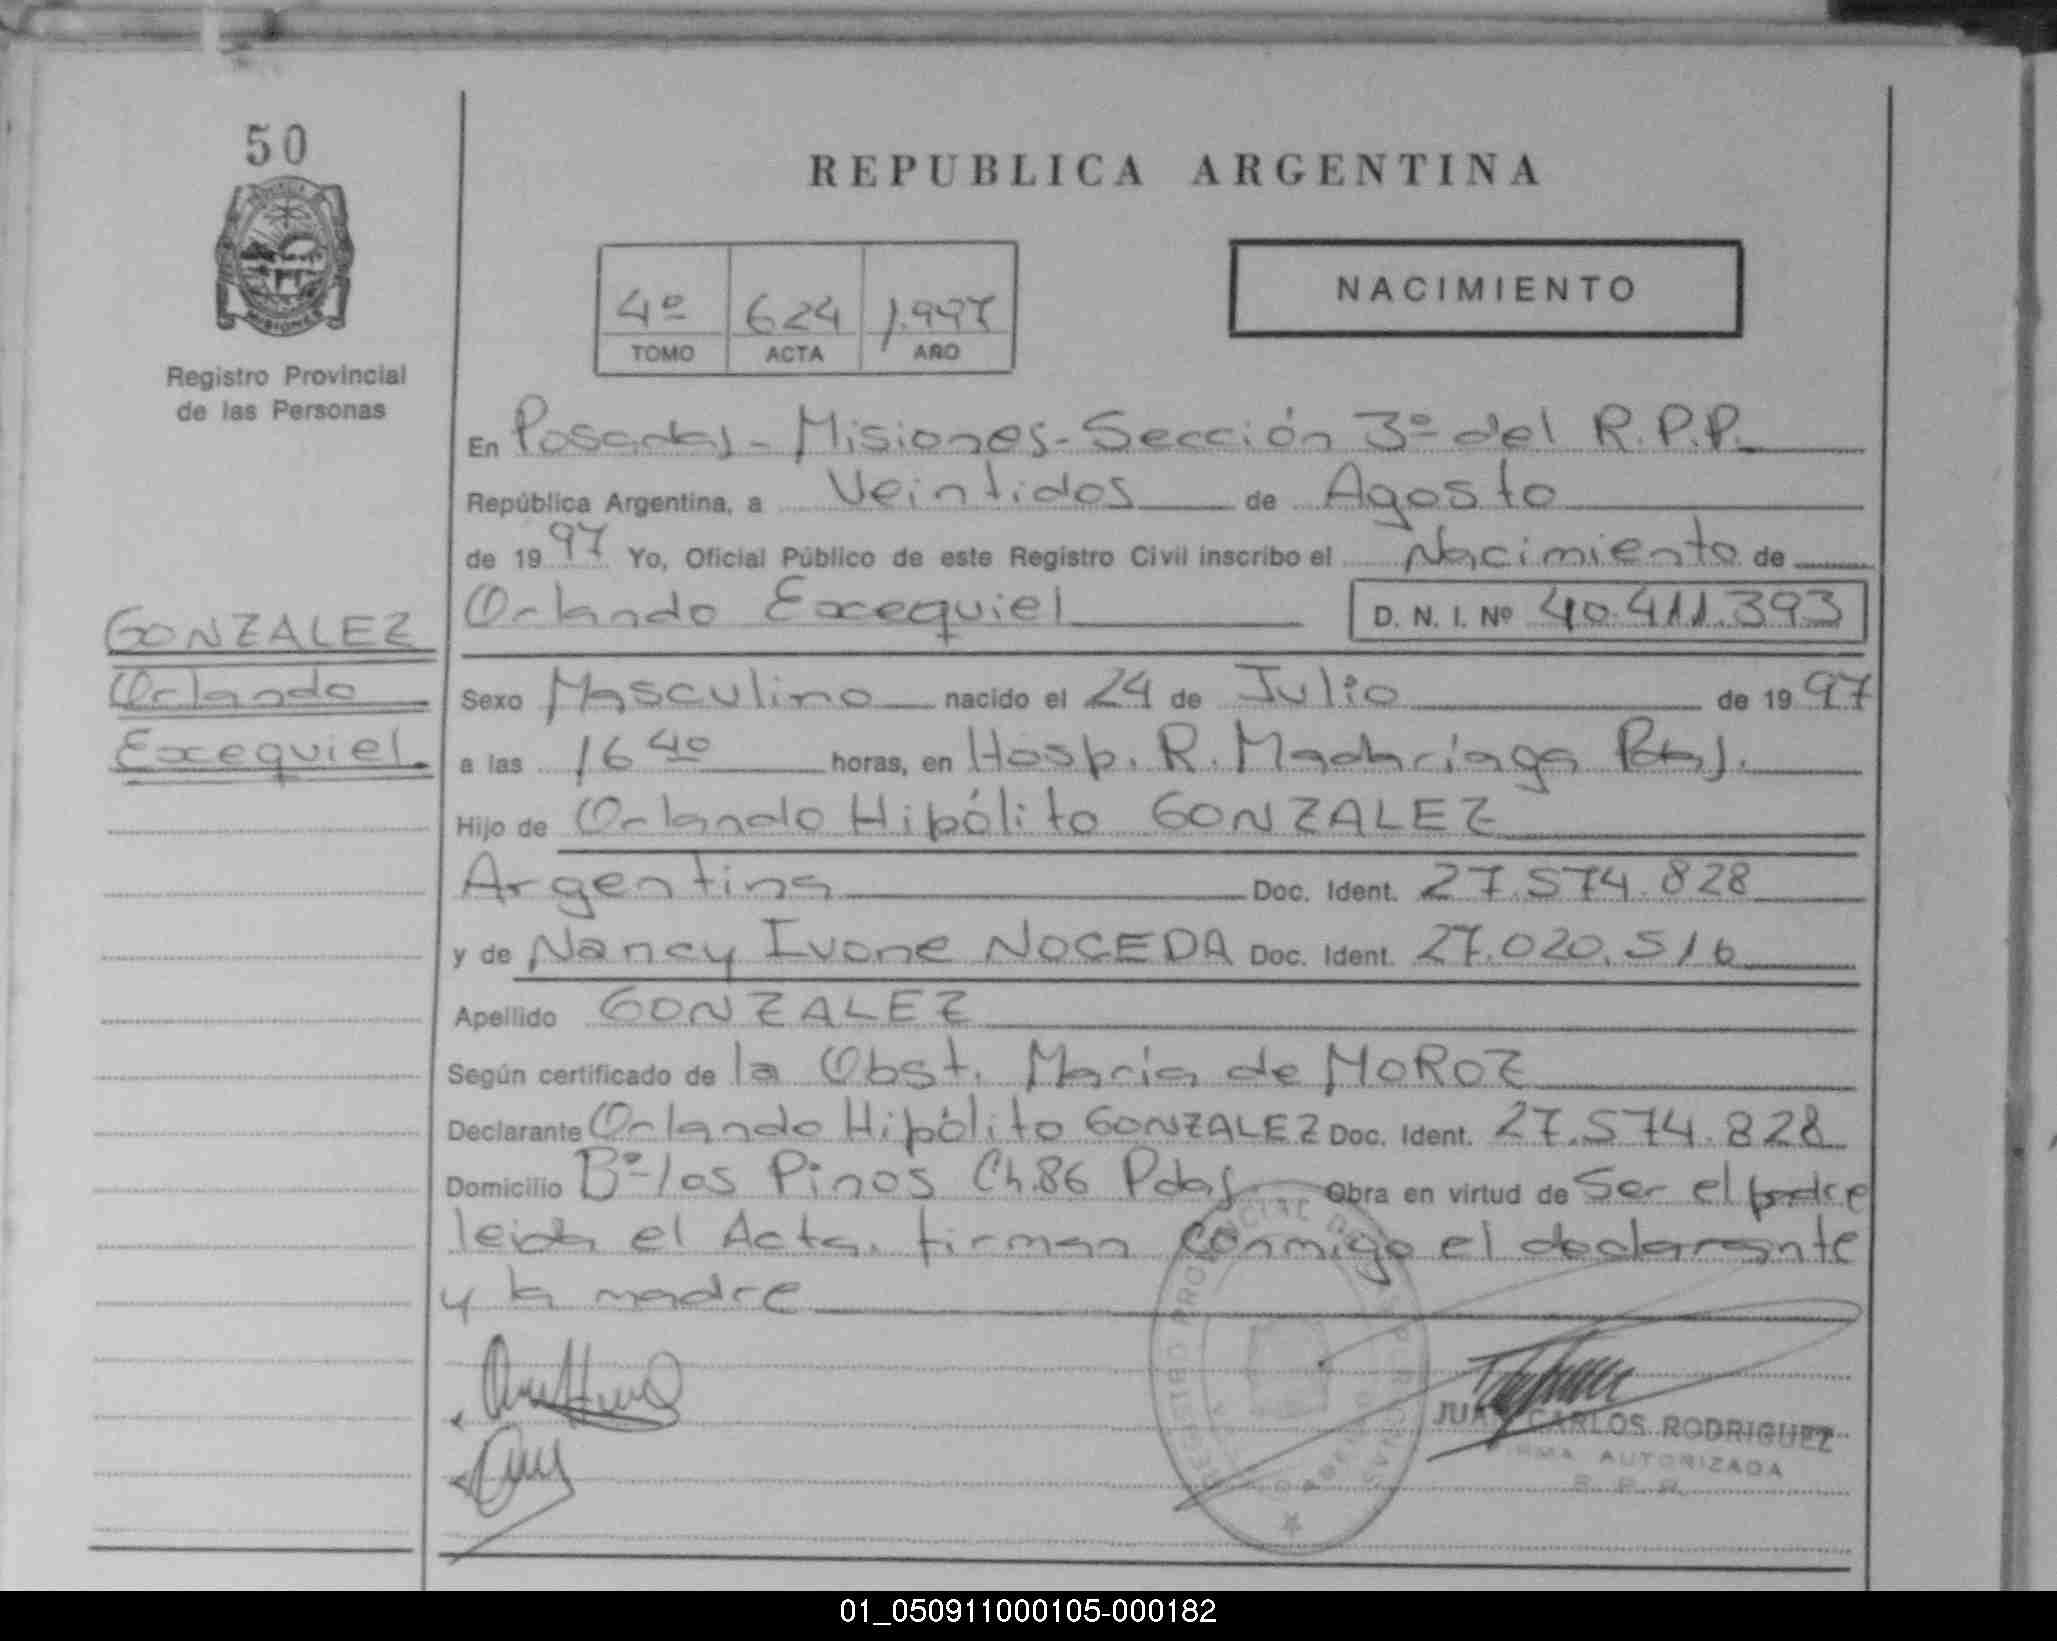 50
MISIONES
Registro Provincial
de las Personas
REPUBLICA ARGENTINA
4º 624 1.997
TOMO ACTA AÑO
NACIMIENTO
En Posadas - Misiones - Sección 3º del R.P.P.
República Argentina, a Veintidos de Agosto
de 1997 Yo, Oficial Público de este Registro Civil inscribo el Nacimiento de
Orlando Exequiel D. N. I. Nº 40.411.393
GONZALEZ
Orlando
Exequiel.
Sexo Masculino nacido el 24 de Julio de 1997
a las 16 40 horas, en Hosp. R. Madariaga Pdas.
Hijo de Orlando Hipólito GONZALEZ
Argentina Doc. Ident. 27.574.828
y de Nancy Ivone NOCEDA Doc. Ident. 27.020.516
Apellido GONZALEZ
Según certificado de la Obst. Maria de MOROZ
Declarante Orlando Hipólito GONZALEZ Doc. Ident. 27.574.828
Domicilio Bº los Pinos Ch.86 Pdas. Obra en virtud de Ser el padre
leida el Acta, firman conmigo el declarante
y la madre
REGISTRO PROVINCIAL DE LAS PERSONAS
JUAN CARLOS RODRIGUEZ
FIRMA AUTORIZADA
R. P. P.
01_050911000105-000182